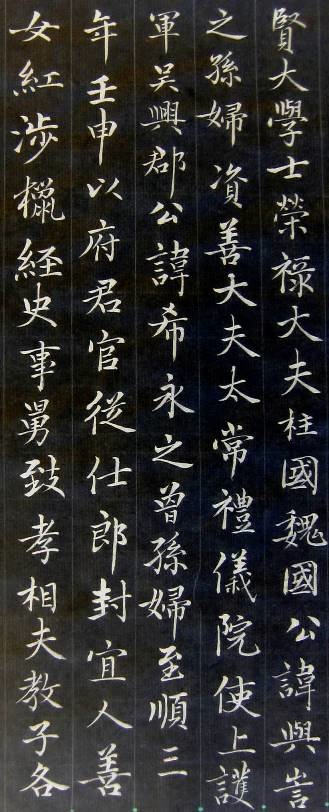 賢大學士榮祿大夫柱國魏國公諱與訔
之孫婦資善大夫太常禮儀院使上護
軍吴興郡公諱希永之曾孫婦至順三
年壬申以府君官從仕郎封宜人善
女紅涉獵経史事舅致孝相夫教子各